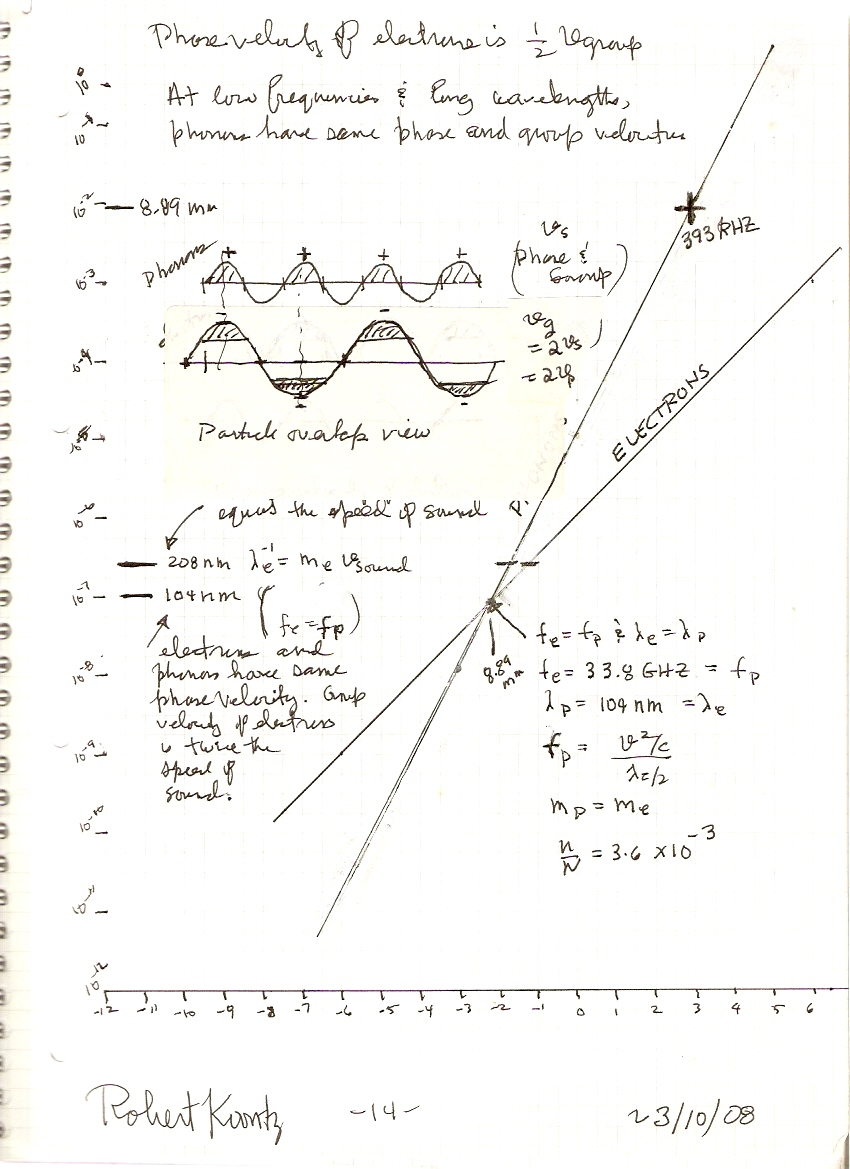 Phase velocity of electrons is 1/2 Vgroup
At low frequencies & long wavelengths,
phonons have same phase and group velocities
10^-2 — 8.89 mm
393 KHZ
Phonons
+ + + +
Vs
(phase &
Group)
10^-3
Vg
= 2Vs
= 2Vp
- -
- -
Particle overlap view
ELECTRONS
equals the "speed" of sound
208 nm λe^-1 = me Vsound
10^-7 — 104 nm (fe = fp)
electrons and
phonons have same
phase velocity. Group
velocity of electrons
is twice the
speed of
sound.
8.89
mm
fe = fp & λe = λp
fe = 33.8 GHZ = fp
λp = 104 nm = λe
fp = v²/c / λc/2
mp = me
n/N = 3.6 x10^-3
10^-8
10^-9
10^-10
10^-11
10^-12
-12 -11 -10 -9 -8 -7 -6 -5 -4 -3 -2 -1 0 1 2 3 4 5 6
Robert Koontz -14- 23/10/08